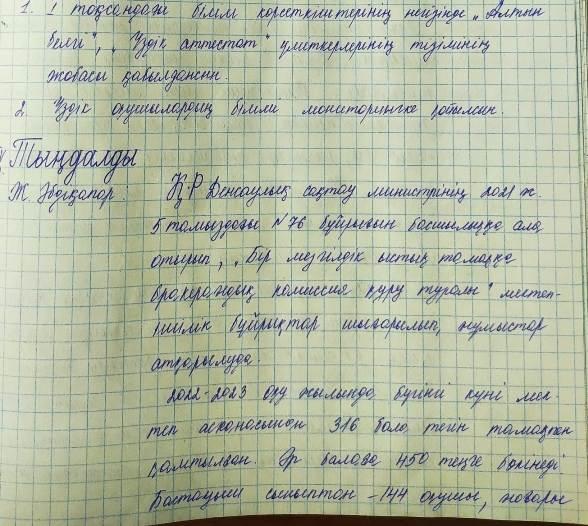 1. 1 тоқсандағы білім көрсеткіштерінің негізінде „Алтын
белгі", „Үздік аттестат" үміткерлерінің тізімінің
жобасы қабылдансын.
2. Үздік оқушылардың білімі мониторингке қойылсын.
Тыңдалды
Ж. Әбдіқапар: Қ.Р Денсаулық сақтау министрінің 2021 ж.
5 тамыздағы №76 бұйрығын басшылыққа ала
отырып, „Бір мезгілдік ыстық тамаққа
бракераждық комиссия құру туралы" мектеп-
ішілік бұйрықтар шығарылып, жұмыстар
атқарылуда.
2022-2023 оқу жылында бүгінгі күні мек-
теп асханасынан 316 бала тегін тамақпен
қамтылған. Әр балаға 450 теңге бөлінеді.
Бастауыш сыныптан - 144 оқушы, жоғары